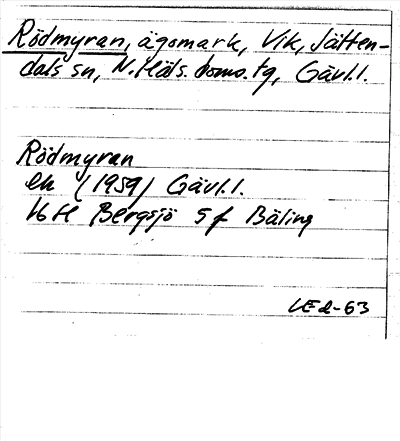 Rödmyran, ägomark, Vik, Jätten-
dals sn, N. Häls. doms. tg, Gävl.l.
Rödmyran
ek (1959) Gävl.l.
16 H Bergsjö 5 f Bäling
LE 2-63